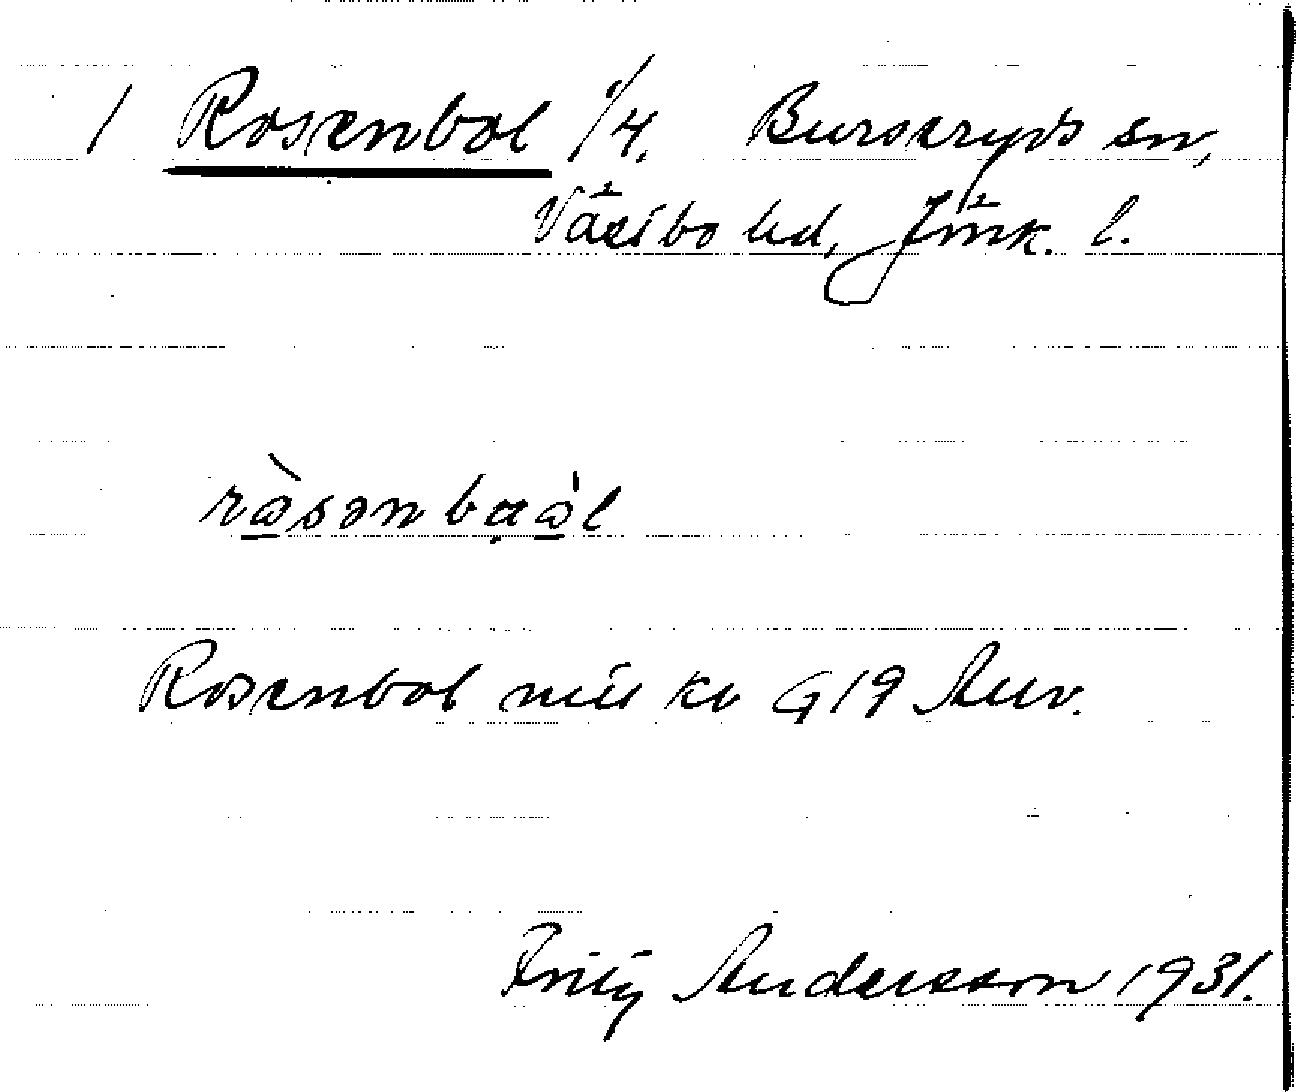 1 Rosenbol 1/4. Burseryds sn,
Västbo hd, Jönk. l.
ròsənbaòl
Rosenbol mtl kr G19 Auv.
Fritz Andersson 1931.